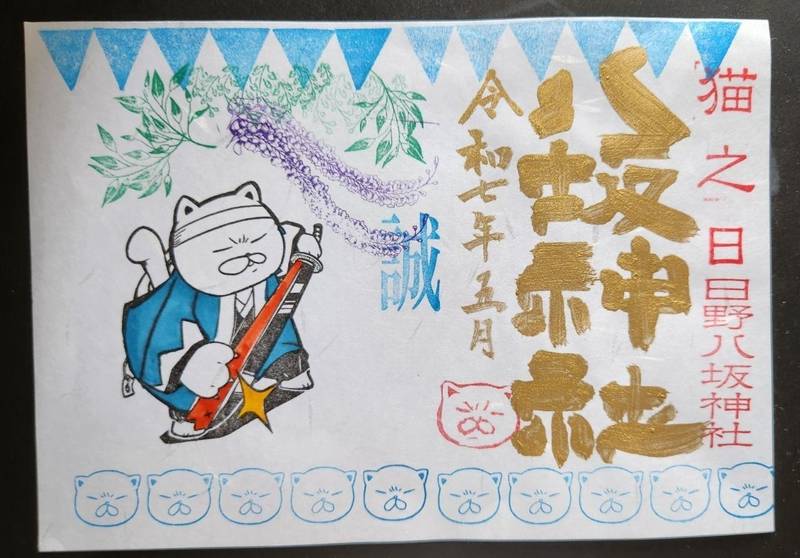 猫之日
日野八坂神社
八坂神社
令和七年五月
誠